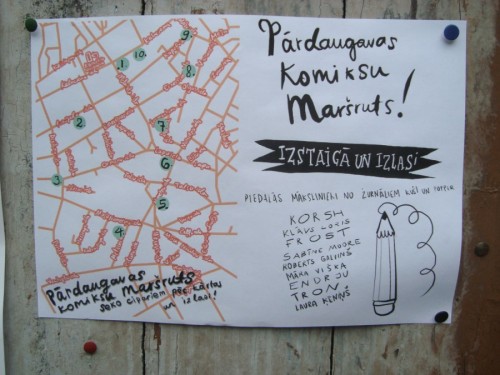 9.
10.
1.
8.
2.
7.
6
3
5.
4.
Pārdaugavas
komiksu maršruts
seko cipariem pēc kārtas
un izlasi!
Pārdaugavas
Komiksu
Maršruts!
IZSTAIGĀ UN IZLASI
PIEDALĀS MĀKSLINIEKI NO ŽURNĀLIEM KUŠ! UN
KORSH
KLĀVS LORIS
FROST
SABĪNE MOORE
ROBERTS
MĀRA VILKA
ENDRJU
TRON!
LAURA ĶENIŅŠ